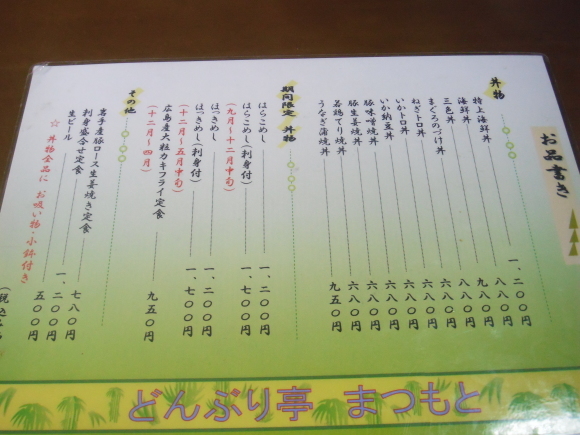 お品書き
丼物
特上海鮮丼 一、二〇〇円
海鮮丼 八八〇円
三色丼 九八〇円
まぐろのづけ丼 八八〇円
ねぎトロ丼 八八〇円
いかトロ丼 八八〇円
いか納豆丼 六八〇円
豚味噌焼丼 六八〇円
豚生姜焼丼 六八〇円
若鶏てり焼丼 六八〇円
うなぎ蒲焼丼 九五〇円
期間限定 丼物
はらこめし 一、二〇〇円
はらこめし(刺身付) 一、七〇〇円
(九月〜十二月中旬)
はっきめし 一、二〇〇円
はっきめし(刺身付) 一、七〇〇円
(十二月〜五月中旬)
広島産大粒カキフライ定食 九五〇円
(十二月〜四月)
その他
岩手産豚ロース生姜焼き定食 七八〇円
刺身盛合せ定食 一、二〇〇円
生ビール 五〇〇円
☆ 丼物全品に お吸い物・小鉢付き
(税込
どんぶり亭 まつもと